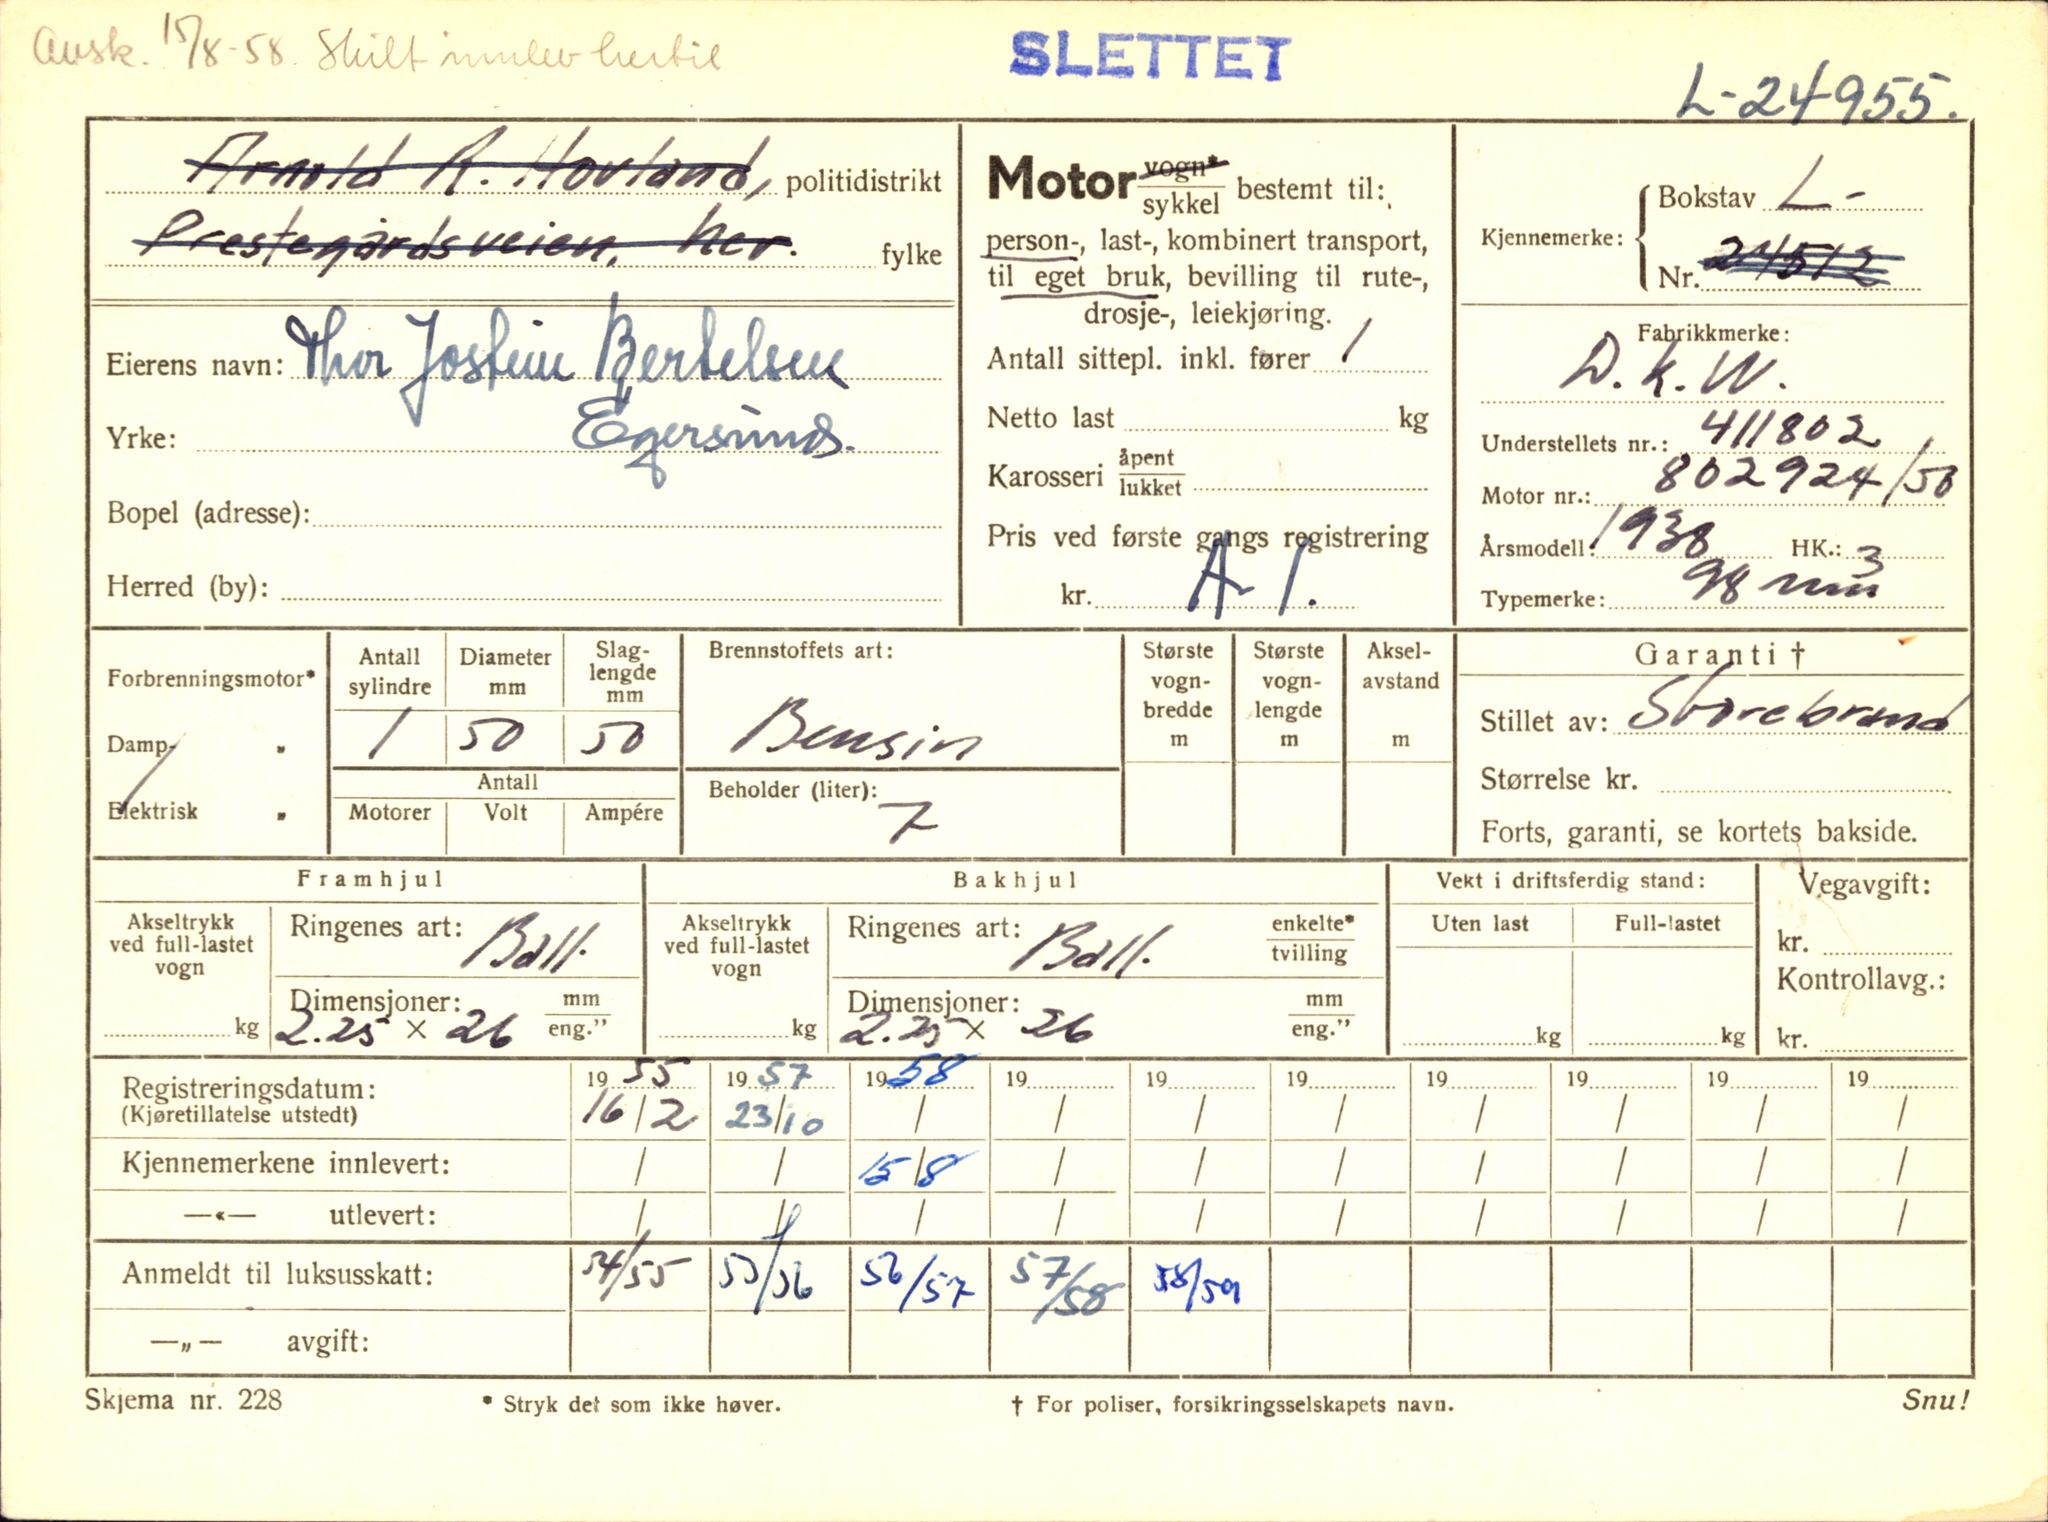 Avsk. 15/8-58. Skilt innlev hertil
SLETTET
L-24955.
Arnold R. Hovland, politidistrikt
Prestegårdsveien, her. fylke
Eierens navn: Thor Jostein Bertelsen
Yrke: Egersund.
Bopel (adresse):
Herred (by):
Motor vogn*/sykkel bestemt til:
person-, last-, kombinert transport,
til eget bruk, bevilling til rute-,
drosje-, leiekjøring.
Antall sittepl. inkl. fører 1
Netto last kg
Karosseri åpent/lukket
Pris ved første gangs registrering
kr. A 1.
Kjennemerke: Bokstav L-
Nr. 24512
Fabrikkmerke:
D.K.W.
Understellets nr.: 411802
Motor nr.: 802924/50
Årsmodell: 1938 HK.: 3
Typemerke: 98 mm
Forbrenningsmotor*
Damp- „
Elektrisk „
Antall sylindre Diameter mm Slag-lengde mm
1 50 50
Antall
Motorer Volt Ampére
Brennstoffets art:
Bensin
Beholder (liter):
7
Største vogn-bredde m
Største vogn-lengde m
Aksel-avstand m
Garanti †
Stillet av: Storebrand
Størrelse kr.
Forts, garanti, se kortets bakside.
Framhjul
Akseltrykk ved full-lastet vogn
kg
Ringenes art: Ball.
Dimensjoner: mm/eng."
2.25 × 26
Bakhjul
Akseltrykk ved full-lastet vogn
kg
Ringenes art: Ball. enkelte*/tvilling
Dimensjoner: mm/eng."
2.25 × 26
Vekt i driftsferdig stand:
Uten last Full-lastet
kg kg
Vegavgift:
kr.
Kontrollavg.:
kr.
Registreringsdatum: 1955 1957 1958 19 19 19 19 19 19 19
(Kjøretillatelse utstedt) 16/2 23/10 / / / / / / / /
Kjennemerkene innlevert: / / 15/8 / / / / / / /
—«— utlevert: / / / / / / / / / /
Anmeldt til luksusskatt: 54/55 55/56 56/57 57/58 58/59
—„— avgift:
Skjema nr. 228 * Stryk det som ikke høver. † For poliser, forsikringsselskapets navn. Snu!